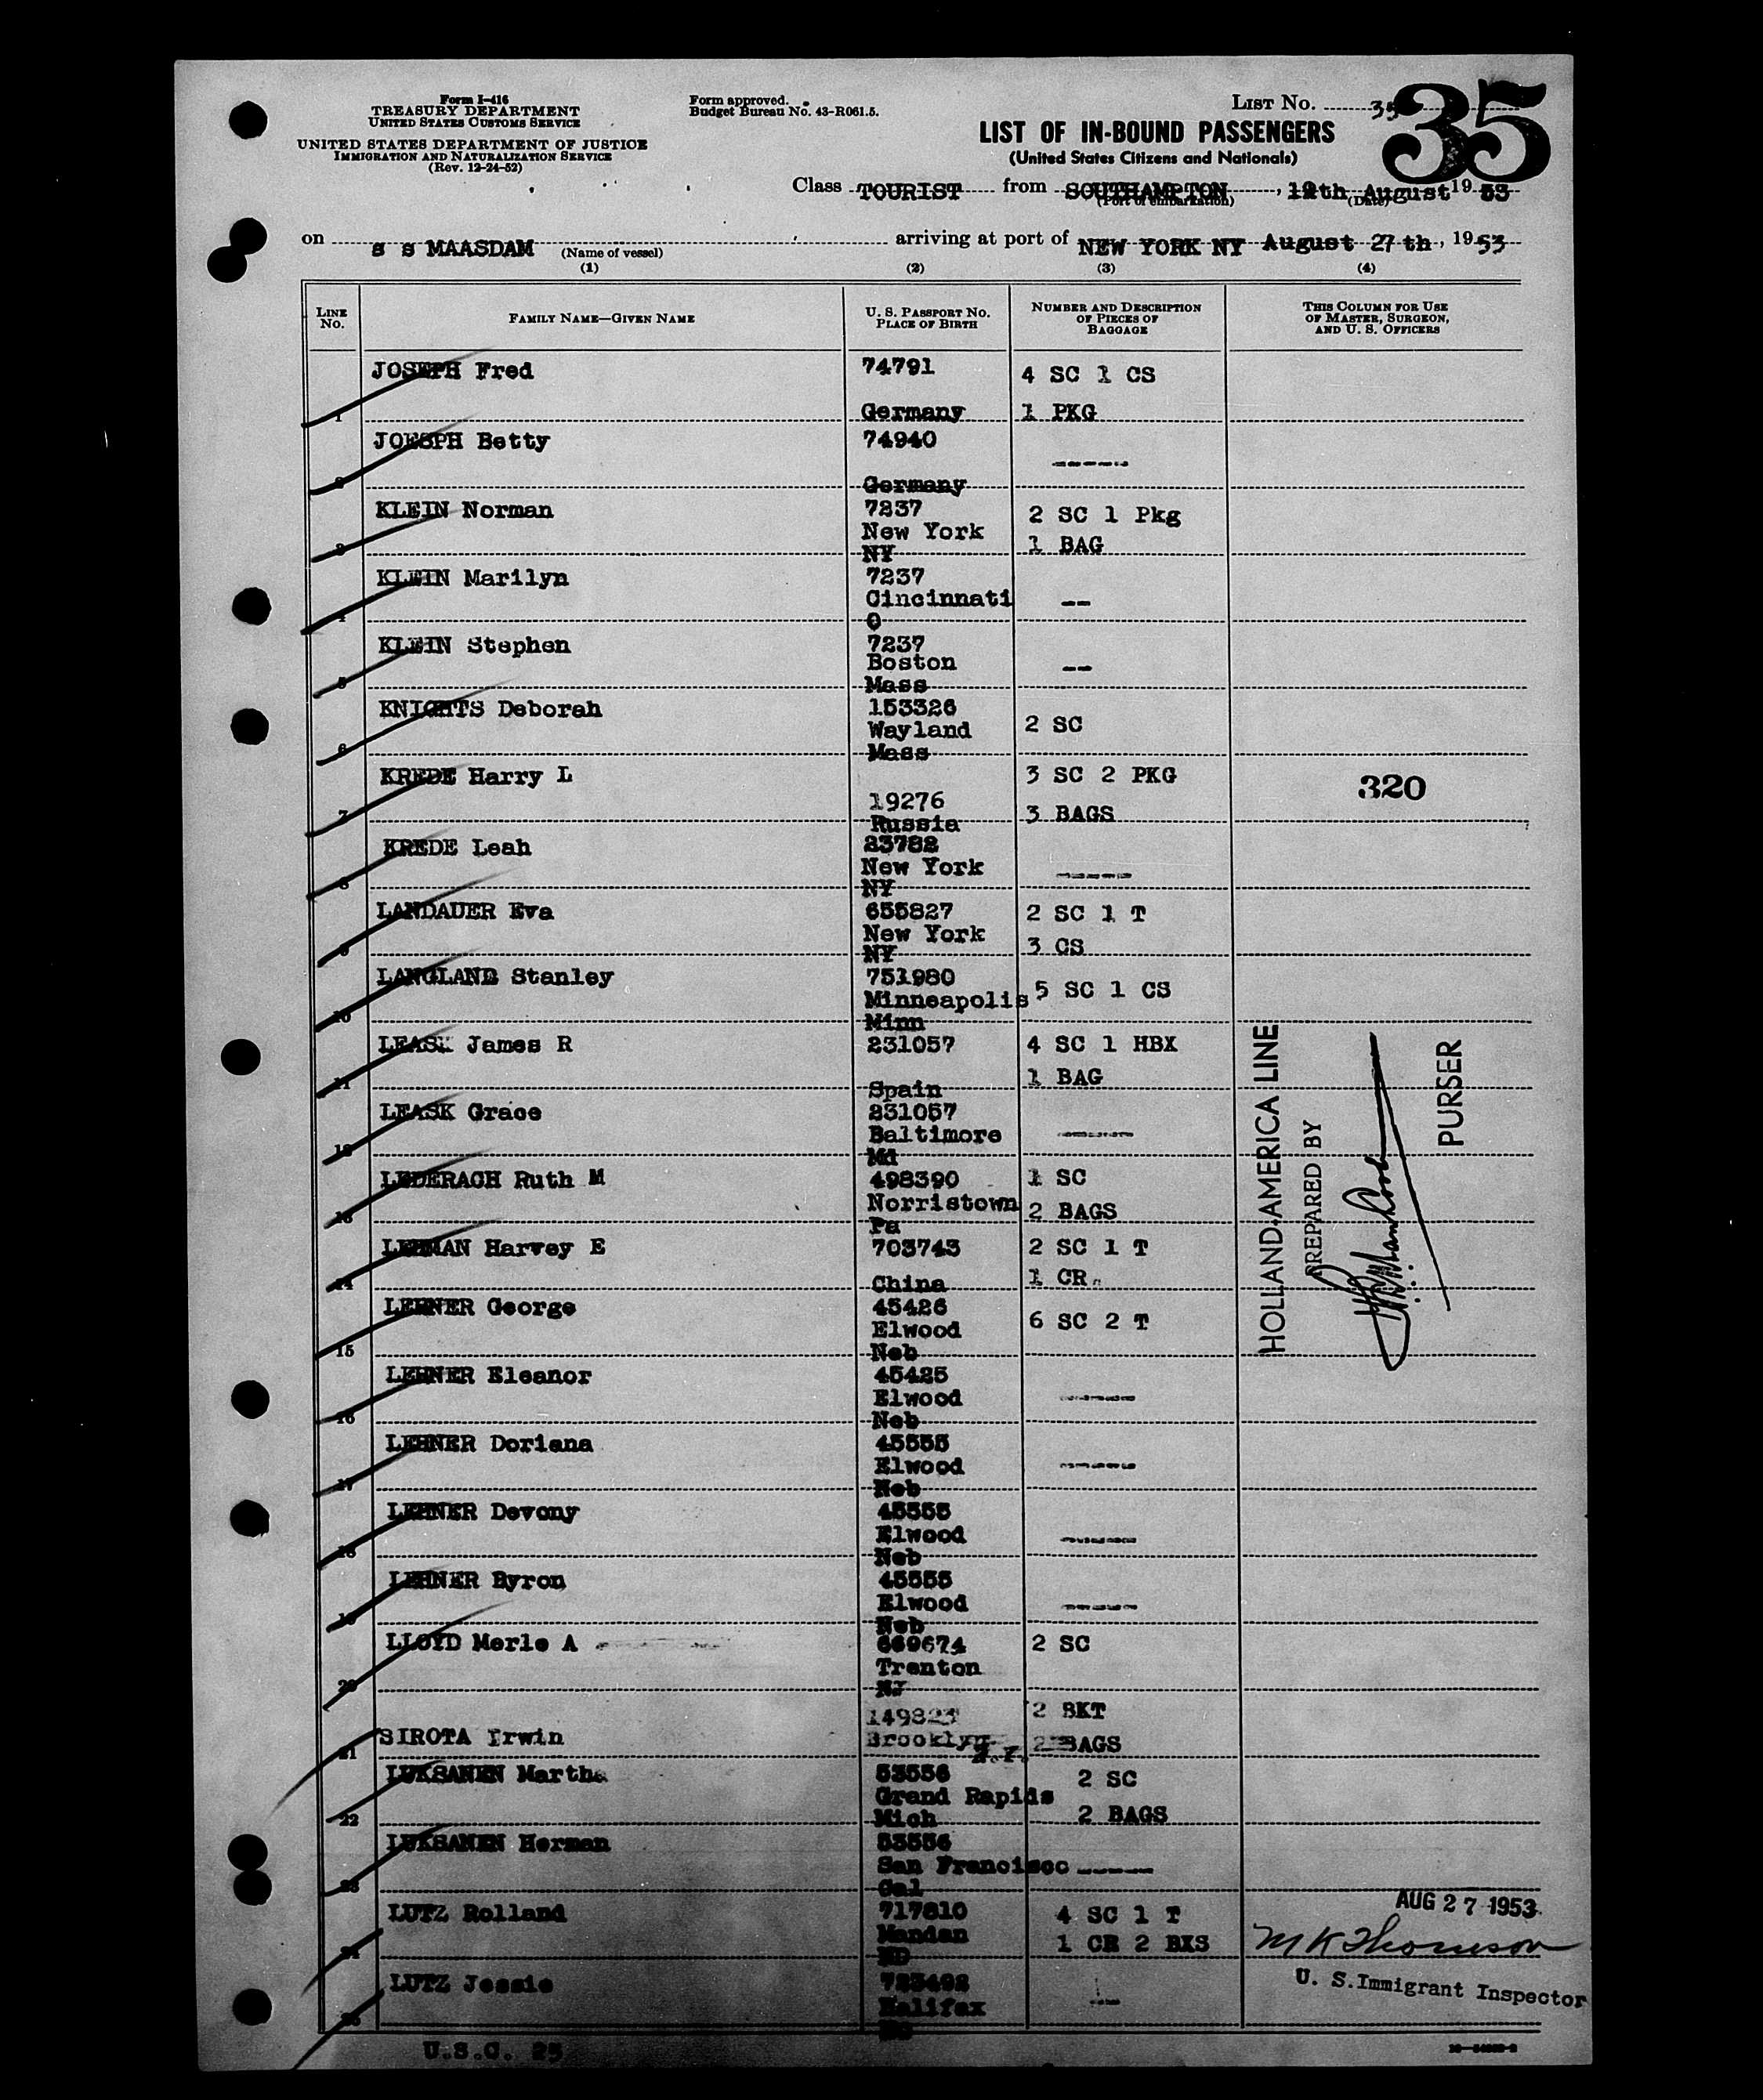 Form I-416
TREASURY DEPARTMENT
UNITED STATES CUSTOMS SERVICE
UNITED STATES DEPARTMENT OF JUSTICE
IMMIGRATION AND NATURALIZATION SERVICE
(Rev. 12-24-52)
Form approved.
Budget Bureau No. 43-R061.5.
LIST No. 35
35
LIST OF IN-BOUND PASSENGERS
(United States Citizens and Nationals)
Class TOURIST from SOUTHAMPTON, August 1953
(Port of embarkation) (Date)
on s s MAASDAM arriving at port of NEW YORK NY August 27 th, 1953
(Name of vessel)
(1) (2) (3) (4)
LINE No.
FAMILY NAME—GIVEN NAME
U. S. PASSPORT NO.
PLACE OF BIRTH
NUMBER AND DESCRIPTION
OF PIECES OF
BAGGAGE
THIS COLUMN FOR USE
OF MASTER, SURGEON,
AND U. S. OFFICERS
JOSEPH Fred 74791 4 SC 1 CS
1 Germany 1 PKG
JOESPH Betty 74940 -----
2 Germany
KLEIN Norman 7237 2 SC 1 Pkg
New York 1 BAG
3 NY
KLEIN Marilyn 7237
Cincinnati --
4 O
KLEIN Stephen 7237
Boston --
5 Mass
KNIGHTS Deborah 153326
6 Wayland 2 SC
Mass
KREDE Harry L 3 SC 2 PKG 320
19276
7 Russia 3 BAGS
KREDE Leah 23782
New York -----
8 NY
LANDAUER Eva 655827 2 SC 1 T
New York 3 CS
9 NY
LANGLAND Stanley 751980
Minneapolis 5 SC 1 CS
10 Minn
LEASK James R 231057 4 SC 1 HBX
1 BAG
11 Spain
LEASK Grace 231057
Baltimore -----
12 Md
LEDERACH Ruth M 498390 1 SC
Norristown 2 BAGS
13 Pa
LEHMAN Harvey E 703743 2 SC 1 T
14 China 1 CR
LEHNER George 45426
Elwood 6 SC 2 T
15 Neb
LEHNER Eleanor 45425
Elwood -----
16 Neb
LEHNER Doriana 45555
Elwood -----
17 Neb
LEHNER Devony 45555
Elwood -----
18 Neb
LEHNER Byron 45555
Elwood -----
19 Neb
LLOYD Merle A 669674 2 SC
Trenton
20 NJ
149823 2 BKT
SIROTA Irwin Brooklyn N.Y. 2 BAGS
21
LUKSANEN Martha 53556 2 SC
Grand Rapids
22 Mich 2 BAGS
LUKSANEN Herman 53556
San Francisco -----
23 Cal
LUTZ Rolland 717810 4 SC 1 T
Mandan 1 CR 2 BXS
24 ND
LUTZ Jessie 723492
Halifax --
25
HOLLAND-AMERICA LINE
PREPARED BY
PURSER
AUG 27 1953
M K Thomson
U. S. Immigrant Inspector
U.S.C. 25